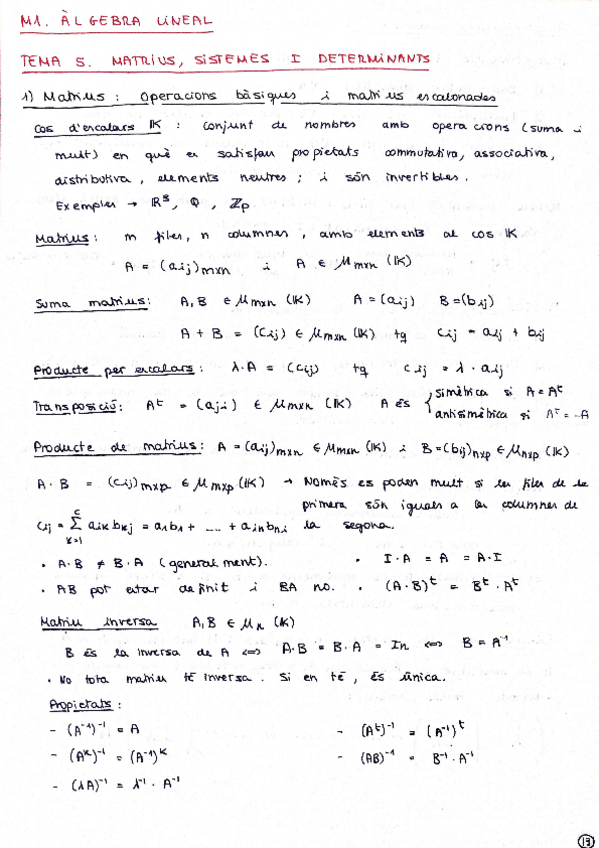 M1. ÀLGEBRA LINEAL
TEMA 5. MATRIUS, SISTEMES I DETERMINANTS
1) Matrius : Operacions bàsiques i matrius escalonades
Cos d'escalars 𝕂 : conjunt de nombres amb operacions (suma i
mult) en què es satisfan propietats commutativa, associativa,
distributiva, elements neutres ; i són invertibles.
Exemples → ℝ, ℚ, ℤp
Matrius : m files, n columnes, amb elements al cos 𝕂
A = (aij)mxn i A ∈ Mmxn (𝕂)
Suma matrius : A, B ∈ Mmxn (𝕂) A = (aij) B = (bij)
A + B = (cij) ∈ Mmxn (𝕂) tq cij = aij + bij
Producte per escalars : λ·A = (cij) tq cij = λ · aij
Transposició : Aᵗ = (aji) ∈ Mmxn (𝕂) A és { simètrica si A = Aᵗ
antisimètrica si Aᵗ = -A
Producte de matrius : A = (aij)mxn ∈ Mmxn (𝕂) i B = (bij)nxp ∈ Mnxp (𝕂)
A · B = (cij)mxp ∈ Mmxp (𝕂) → Només es poden mult si les files de la
primera són iguals a les columnes de
cij = Σ aik bkj = a1b1 + ... + ainbni la segona.
k=1
· A·B ≠ B·A (generalment). · I·A = A = A·I
· AB pot estar definit i BA no. · (A·B)ᵗ = Bᵗ · Aᵗ
Matriu inversa A, B ∈ Mn (𝕂)
B és la inversa de A ⇔ A·B = B·A = In ⇔ B = A⁻¹
· No tota matriu té inversa. Si en té, és única.
Propietats :
- (A⁻¹)⁻¹ = A - (Aᵗ)⁻¹ = (A⁻¹)ᵗ
- (Aᵏ)⁻¹ = (A⁻¹)ᵏ - (AB)⁻¹ = B⁻¹ · A⁻¹
- (λA)⁻¹ = λ⁻¹ · A⁻¹
17